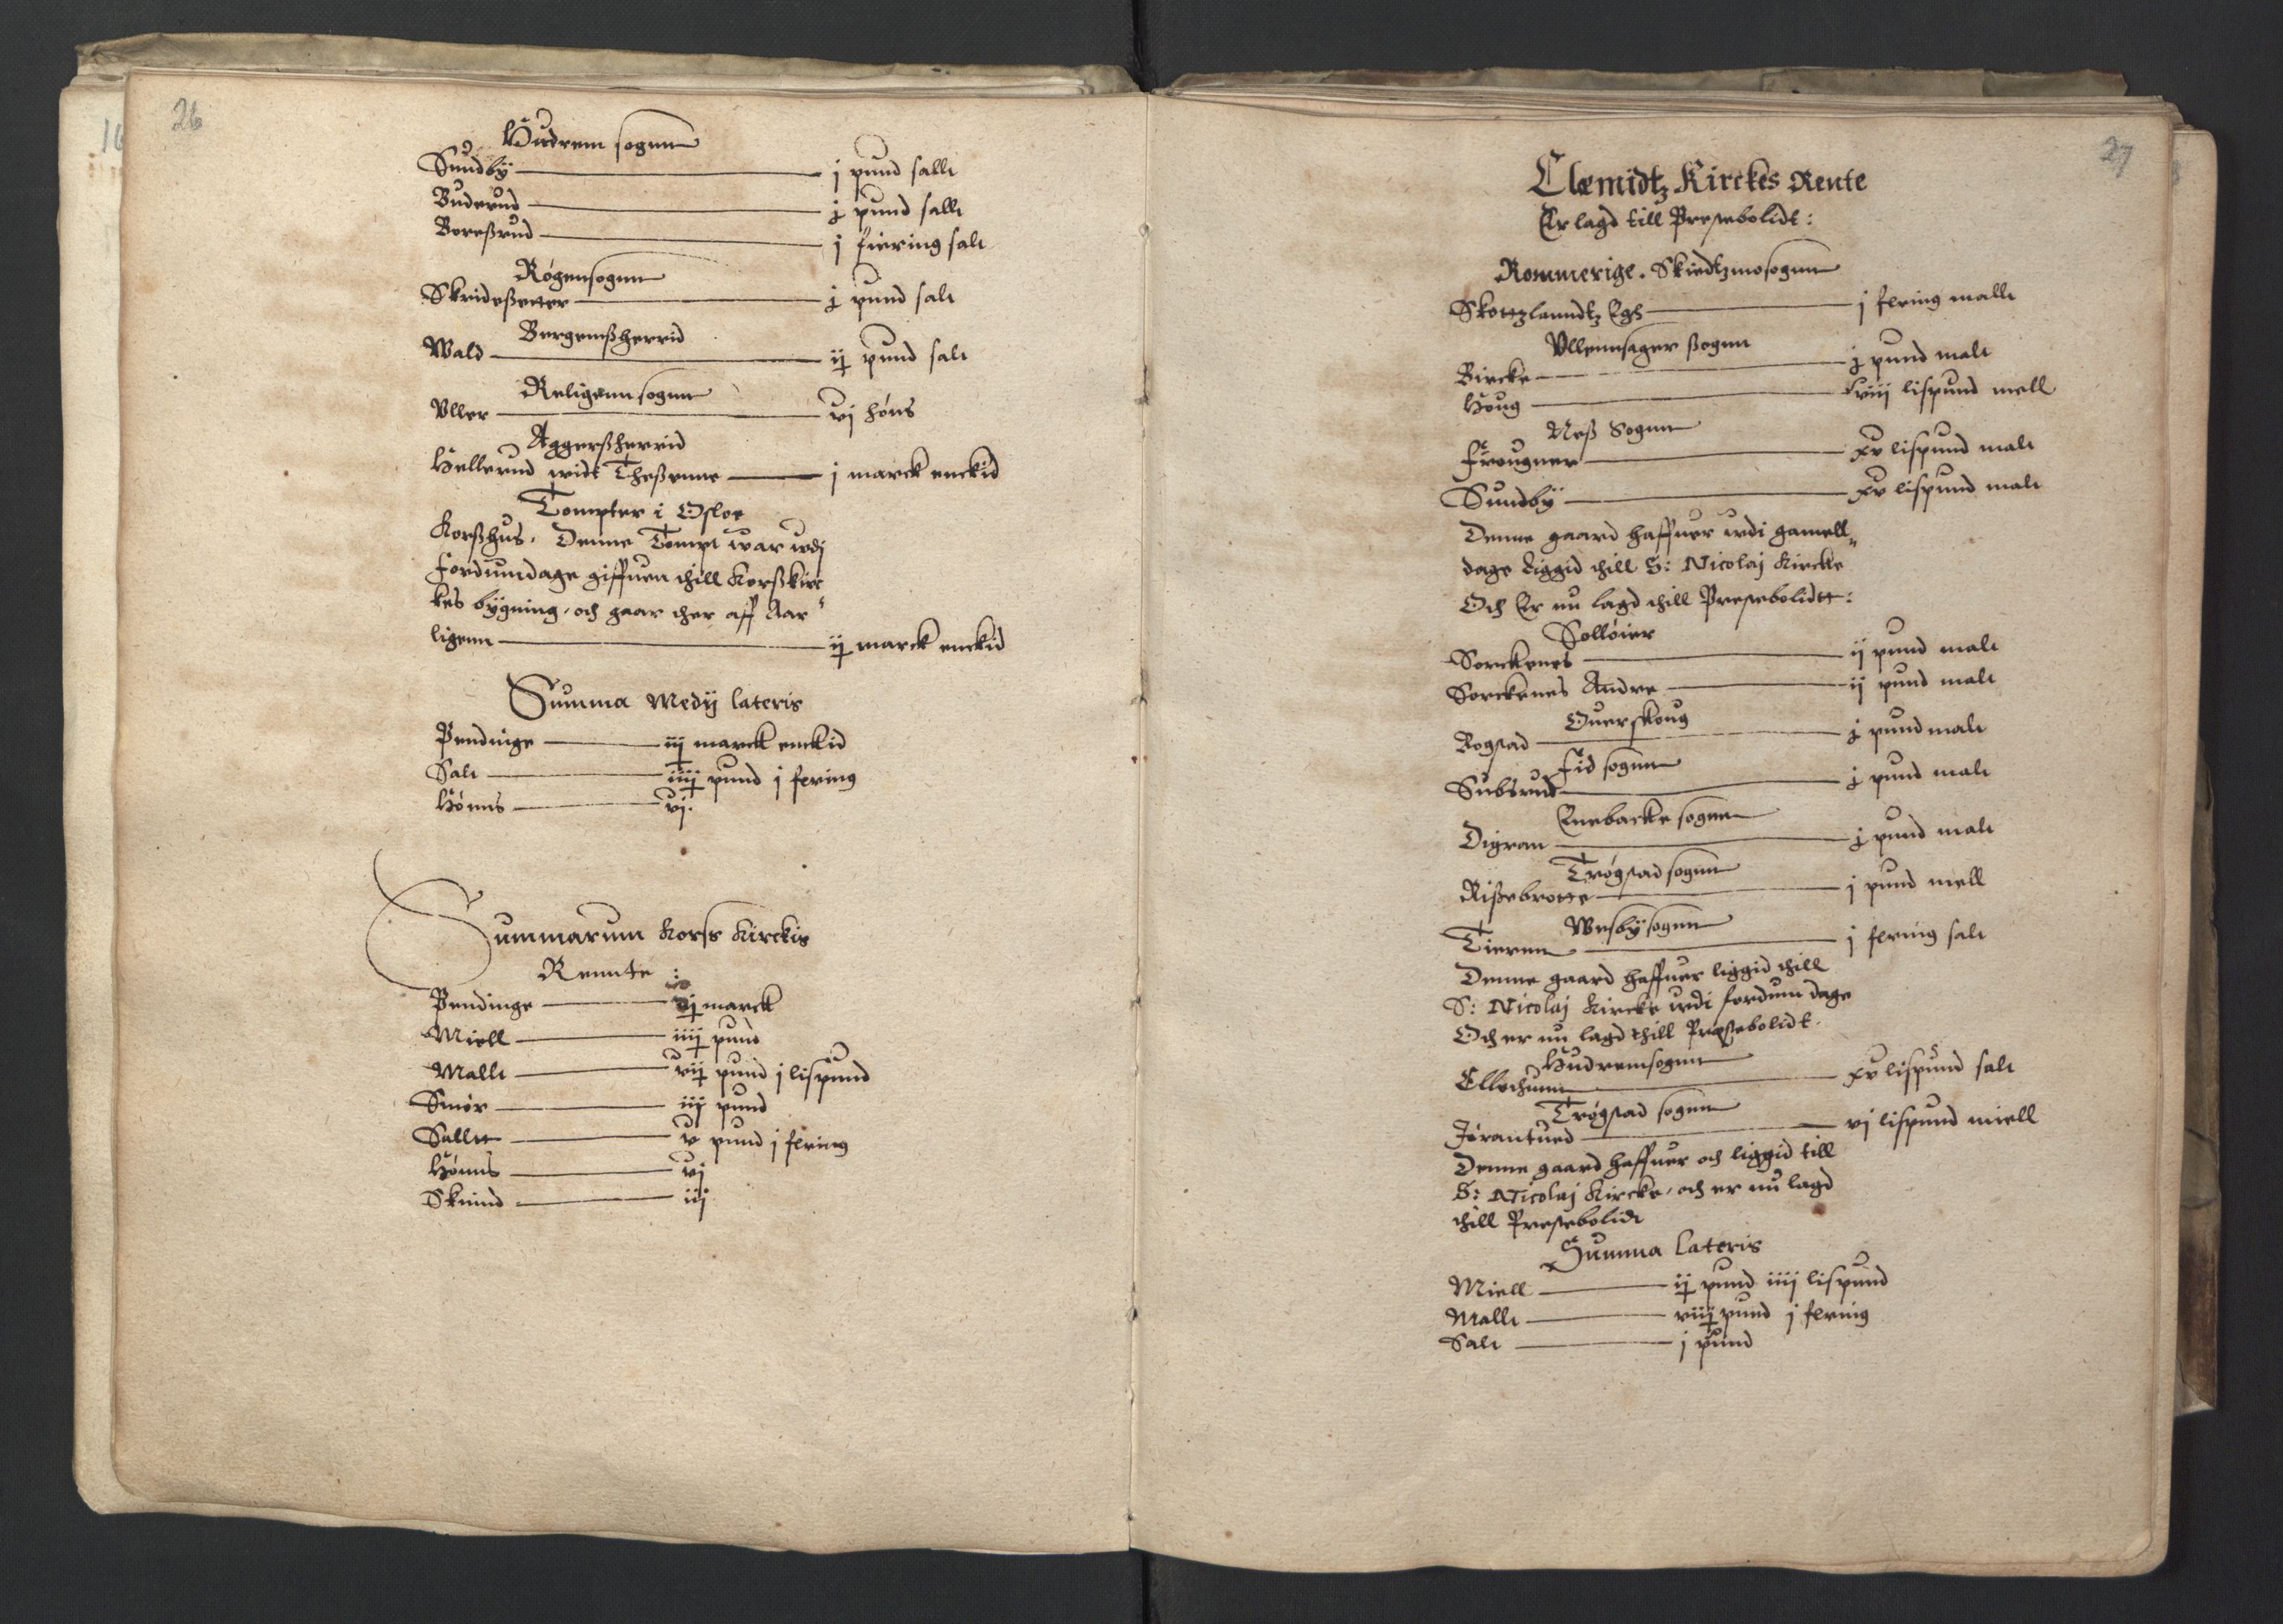 26
Hudrem sognn
Sundby — j pund sallt
Buderud — j pund sallt
Boreßrud — j fiering salt
Røgensognn
Skrideßetter — j pund salt
Bergemßherrid
Wald — ij pund salt
Religenn sognn
Vller — vj høns
Aggerßherrid
Hellerud widt Theßenne — j marck enckid
Tompter i Osloe
Korßhus. Denne Tompt war wdj
fordumdage giffuen thill Korßkirc
kes bygning, och gaar ther aff Aar"
ligenn — ij marck enckid
Summa Medij lateris
Pendinge — iij marck enckid
Salt — iiij pund j fering
Hønns — vj.
Summarum Korss Kirckis
Rennte:
Pendinge — vj marck
Miell — iiij pund
Mallt — vij pund j lispund
Smør — iij pund
Salltt — v pund j fering
Hønns — vj
Skinnd — iij
27
Clæmidtz Kirckes Rente
Er lagd till Prestebolidt:
Rommerige. Skiedtzmosognn
Skottzlanndtz Egh — j fering mallt
Vllennsager ßognn
Bircke — j pund malt
Houg — xviij lispund mell
Neß Sognn
Frougner — xv lispund malt
Sundby — xv lispund malt
Denne gaard haffuer wdi gamell"
dage liggid thill S: Nicolaj Kircke
Och Er nu lagd thill Prestebolidtt:
Solløier
Sorckenes — ij pund malt
Sorckenes Andre — ij pund malt
Ouerskoug
Rogstad — j pund malt
Fid sognn
Subsrud — j pund malt
Enebacke sognn
Digran — j pund malt
Trøgstad sognn
Rißebrotte — j pund mell
Wesby sognn
Tieren — j fering salt
Denne gaard haffuer liggid thill
S: Nicolaj Kircke wdi fordum dage
Och er nu lagd thill Præstebolidt.
Hudremsognn
Ellothunn — xv lispund salt
Trøgstad sognn
Jørantued — vj lispund miell
Denne gaard haffuer och liggid till
S: Nicolaj Kircke, och er nu lagd
thill Prestebolidt
Summa lateris
Miell — ij pund iiij lispund
Mallt — viij pund j fering
Salt — j pund